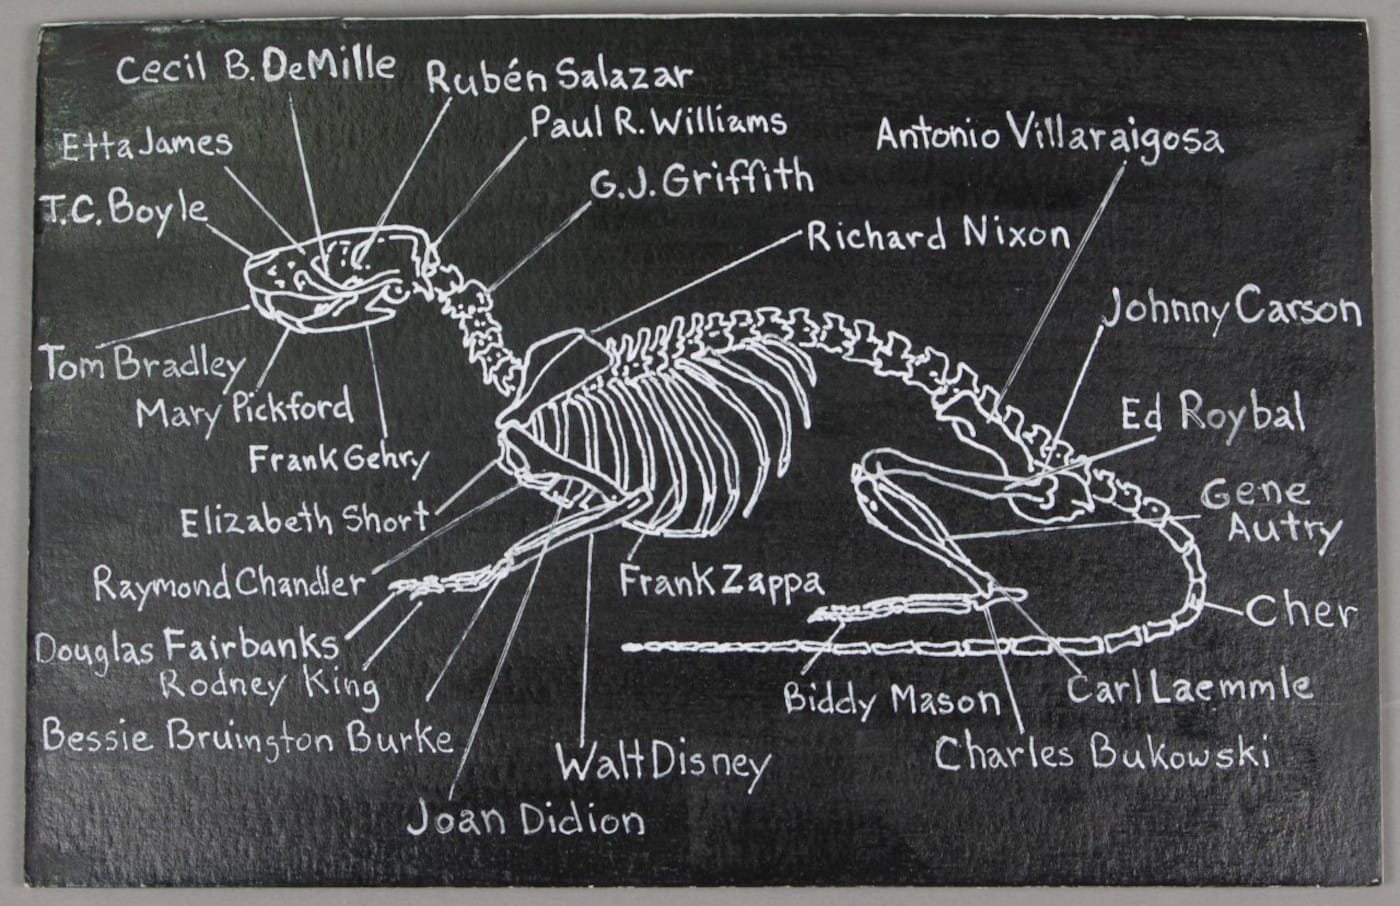 Cecil B. DeMille
Rubén Salazar
Paul R. Williams
Antonio Villaraigosa
Etta James
G.J. Griffith
T.C. Boyle
Richard Nixon
Johnny Carson
Tom Bradley
Mary Pickford
Ed Roybal
Frank Gehry
Gene
Autry
Elizabeth Short
Raymond Chandler
Frank Zappa
Cher
Douglas Fairbanks
Rodney King
Biddy Mason
Carl Laemmle
Bessie Bruington Burke
Charles Bukowski
Walt Disney
Joan Didion